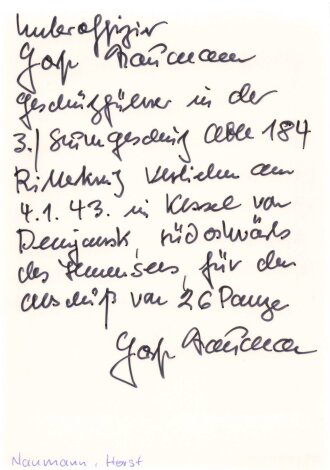 Unteroffizier
Horst Naumann
Geschützführer in der
3./ Sturmgeschütz Abt. 184
Ritterkreuz verliehen am
4.1.43. im Kessel von
Demjansk, südostwärts
des Ilmensees, für den
Abschuß von 26 Panzer
Horst Naumann
Naumann, Horst